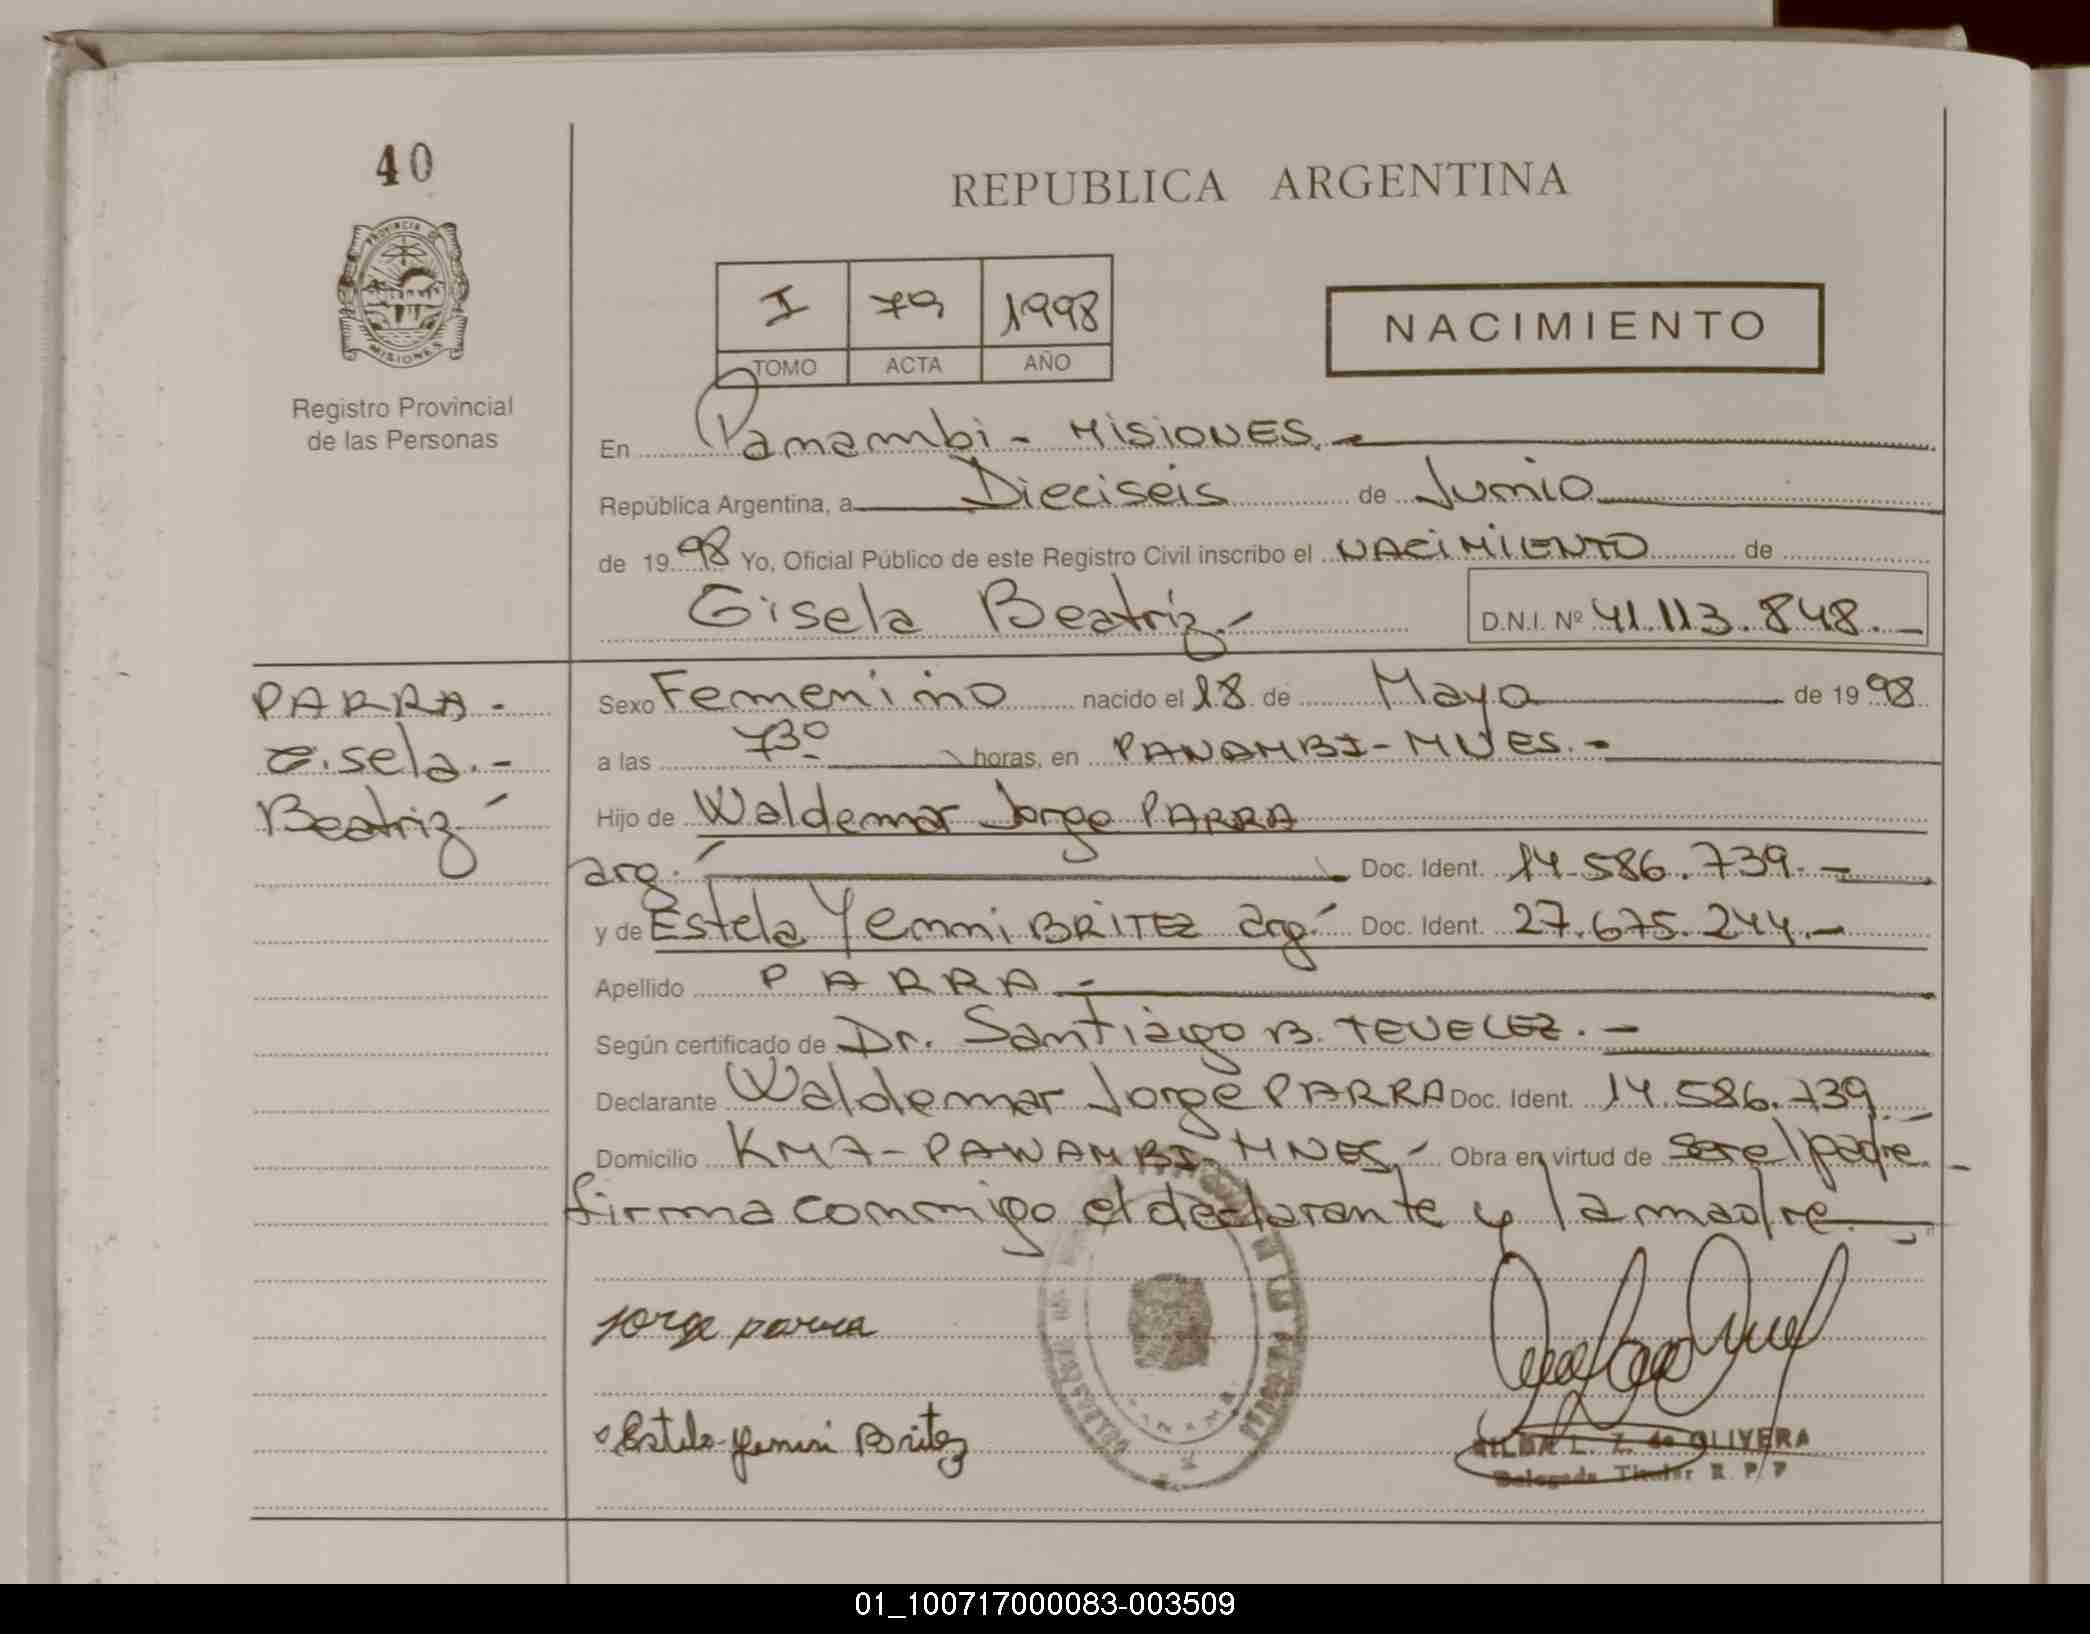 40
REPUBLICA ARGENTINA
PROVINCIA DE
MISIONES
I 79 1998
TOMO ACTA AÑO
NACIMIENTO
Registro Provincial
de las Personas
En Panambi - MISIONES.-
República Argentina, a Dieciseis de Junio
de 1998 Yo, Oficial Público de este Registro Civil inscribo el NACIMIENTO de
Gisela Beatriz.- D.N.I. Nº 41.113.848.-
PARRA -
Gisela.-
Beatriz-
Sexo Femenino nacido el 18 de Mayo de 1998
a las 7³⁰ horas, en PANAMBI - MNES.-
Hijo de Waldemar Jorge PARRA
arg.- Doc. Ident. 14.586.739.-
y de Estela Yenni BRITEZ arg.- Doc. Ident. 27.675.244.-
Apellido PARRA.-
Según certificado de Dr. Santiago B. TEVELEZ.-
Declarante Waldemar Jorge PARRA Doc. Ident. 14.586.739.-
Domicilio KM 7 - PANAMBI - MNES.- Obra en virtud de ser el padre -
firma conmigo el declarante y la madre.-
Jorge parra
Estela Yenni Britez
L. Z. de OLIVERA
Delegada Titular R. P. P
01_100717000083-003509